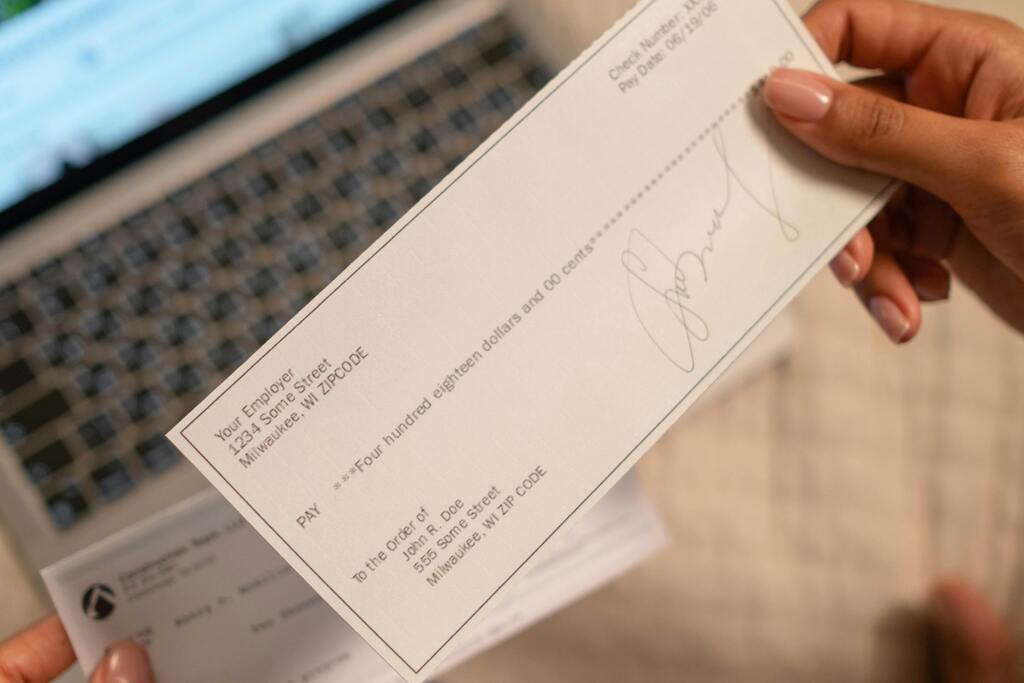 Check Number: XX
Pay Date: 06/19/06
Your Employer
1234 Some Street
Milwaukee, WI ZIPCODE
PAY ***Four hundred eighteen dollars and 00 cents************************
To the Order of
John R. Doe
555 Some Street
Milwaukee, WI ZIP CODE
Construction